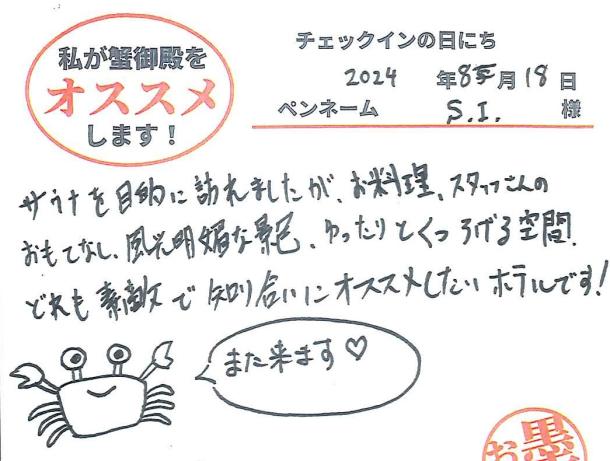 私が蟹御殿を
オススメ
します！
チェックインの日にち
2024 年8月18日
ペンネーム S.I. 様
サウナを目的に訪れましたが、お料理、スタッフさんの
おもてなし、風光明媚な景色、ゆったりとくつろげる空間、
どれも素敵で知り合いにオススメしたいホテルです!
また来ます♡
墨
お